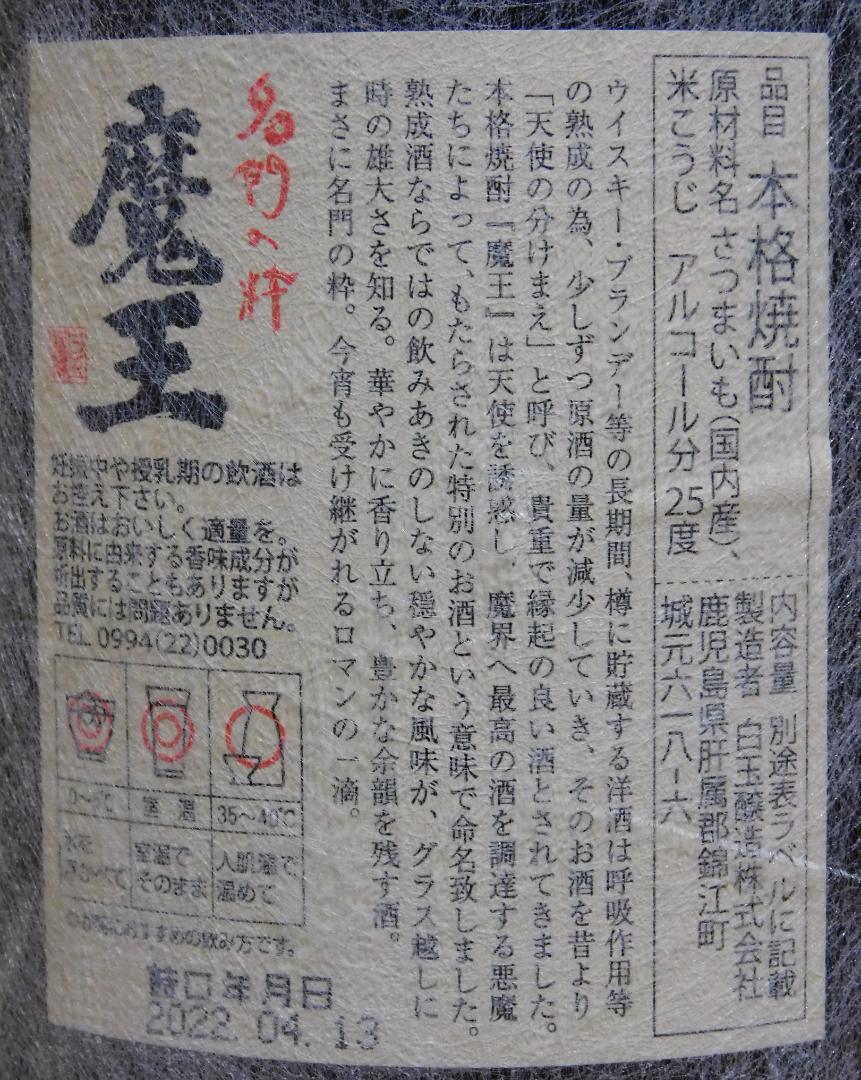 品目 本格焼酎
原材料名 さつまいも(国内産)、
米こうじ アルコール分 25度
内容量 別途表ラベルに記載
製造者 白玉醸造株式会社
鹿児島県肝属郡錦江町
城元六一八-六
ウイスキー・ブランデー等の長期間、樽に貯蔵する洋酒は呼吸作用等
の熟成の為、少しずつ原酒の量が減少していき、そのお酒を昔より
「天使の分けまえ」と呼び、貴重で縁起の良い酒とされてきました。
本格焼酎『魔王』は天使を誘惑し、魔界へ最高の酒を調達する悪魔
たちによって、もたらされた特別のお酒という意味で命名致しました。
熟成酒ならではの飲みあきのしない穏やかな風味が、グラス越しに
時の雄大さを知る。華やかに香り立ち、豊かな余韻を残す酒。
まさに名門の粋。今宵も受け継がれるロマンの一滴。
名門の粋
魔王
妊娠中や授乳期の飲酒は
お控え下さい。
お酒はおいしく適量を。
原料に由来する香味成分が
析出することもありますが
品質には問題ありません。
TEL 0994(22)0030
室温
35〜40℃
室温で
そのまま
人肌温で
温めて
おすすめの飲み方です。
詰口年月日
2022.04.13